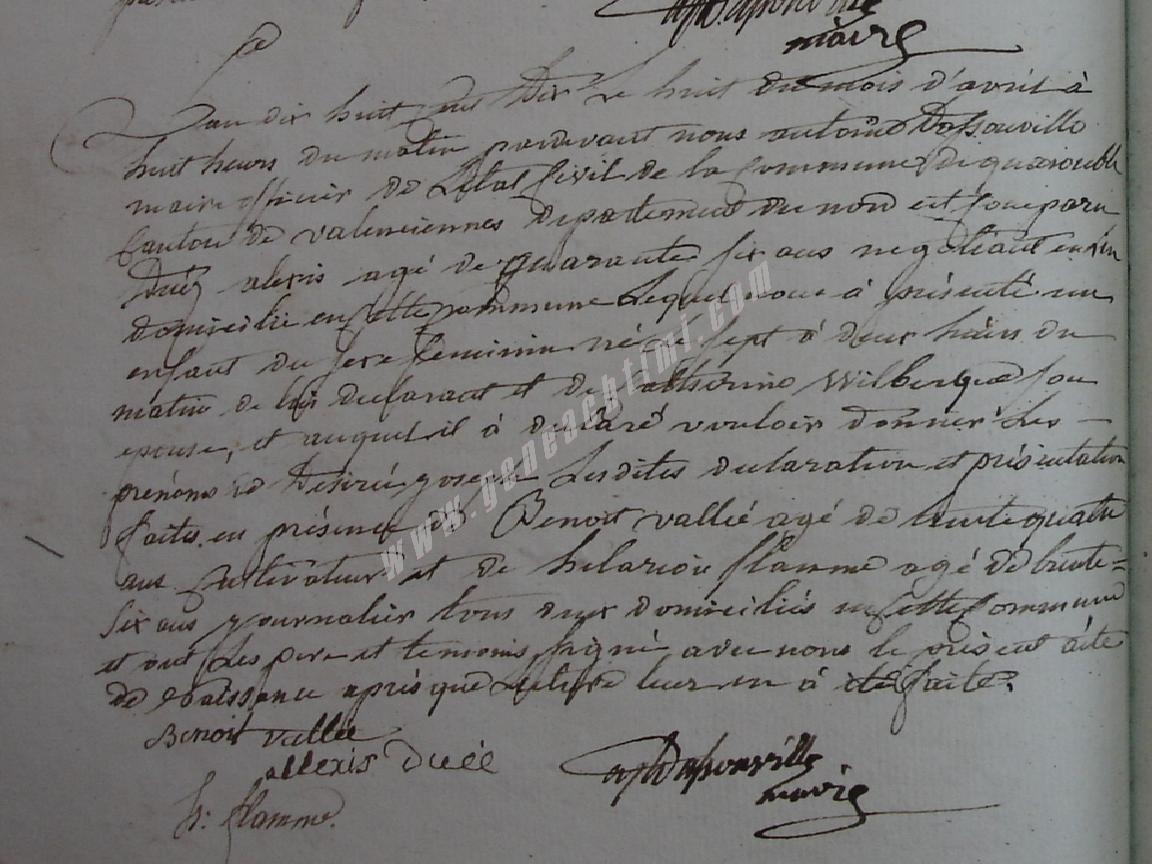 maire
L'an dix huit cent dix le huit du mois d'avril à
huit heurs du matin pardevant nous antoine Dassonville
maire officier de L'Etat Civil de la Commune de quarouble
Canton de valenciennes departement du nord est comparu
Duéz alexis agé de quarante six ans negotiant en
domicilié en Cette Commune Lequel nous à présenté un
enfant du sexe feminin né le sept à deux heurs du
matin de lui declarant et de Catherine Wilberque son
epouse, et auquel il à declaré vouloir donner Les -
prénoms de Desiré joseph Lesdites declaration et présentation
faites en présence de Benoit vallée agé de trente quatre
ans Cultivateur et de helarion flamme agé de trente=
six ans journalier tous deux domiciliés en Cette Commune
et ont Les pere et temoins signé avec nous le présent acte
de Naissence après que Lecture leur en à été faite.
Benoit vallée
allexis Duéé
Dassonville
maire
h: flamme.
www.geneachtimi.com